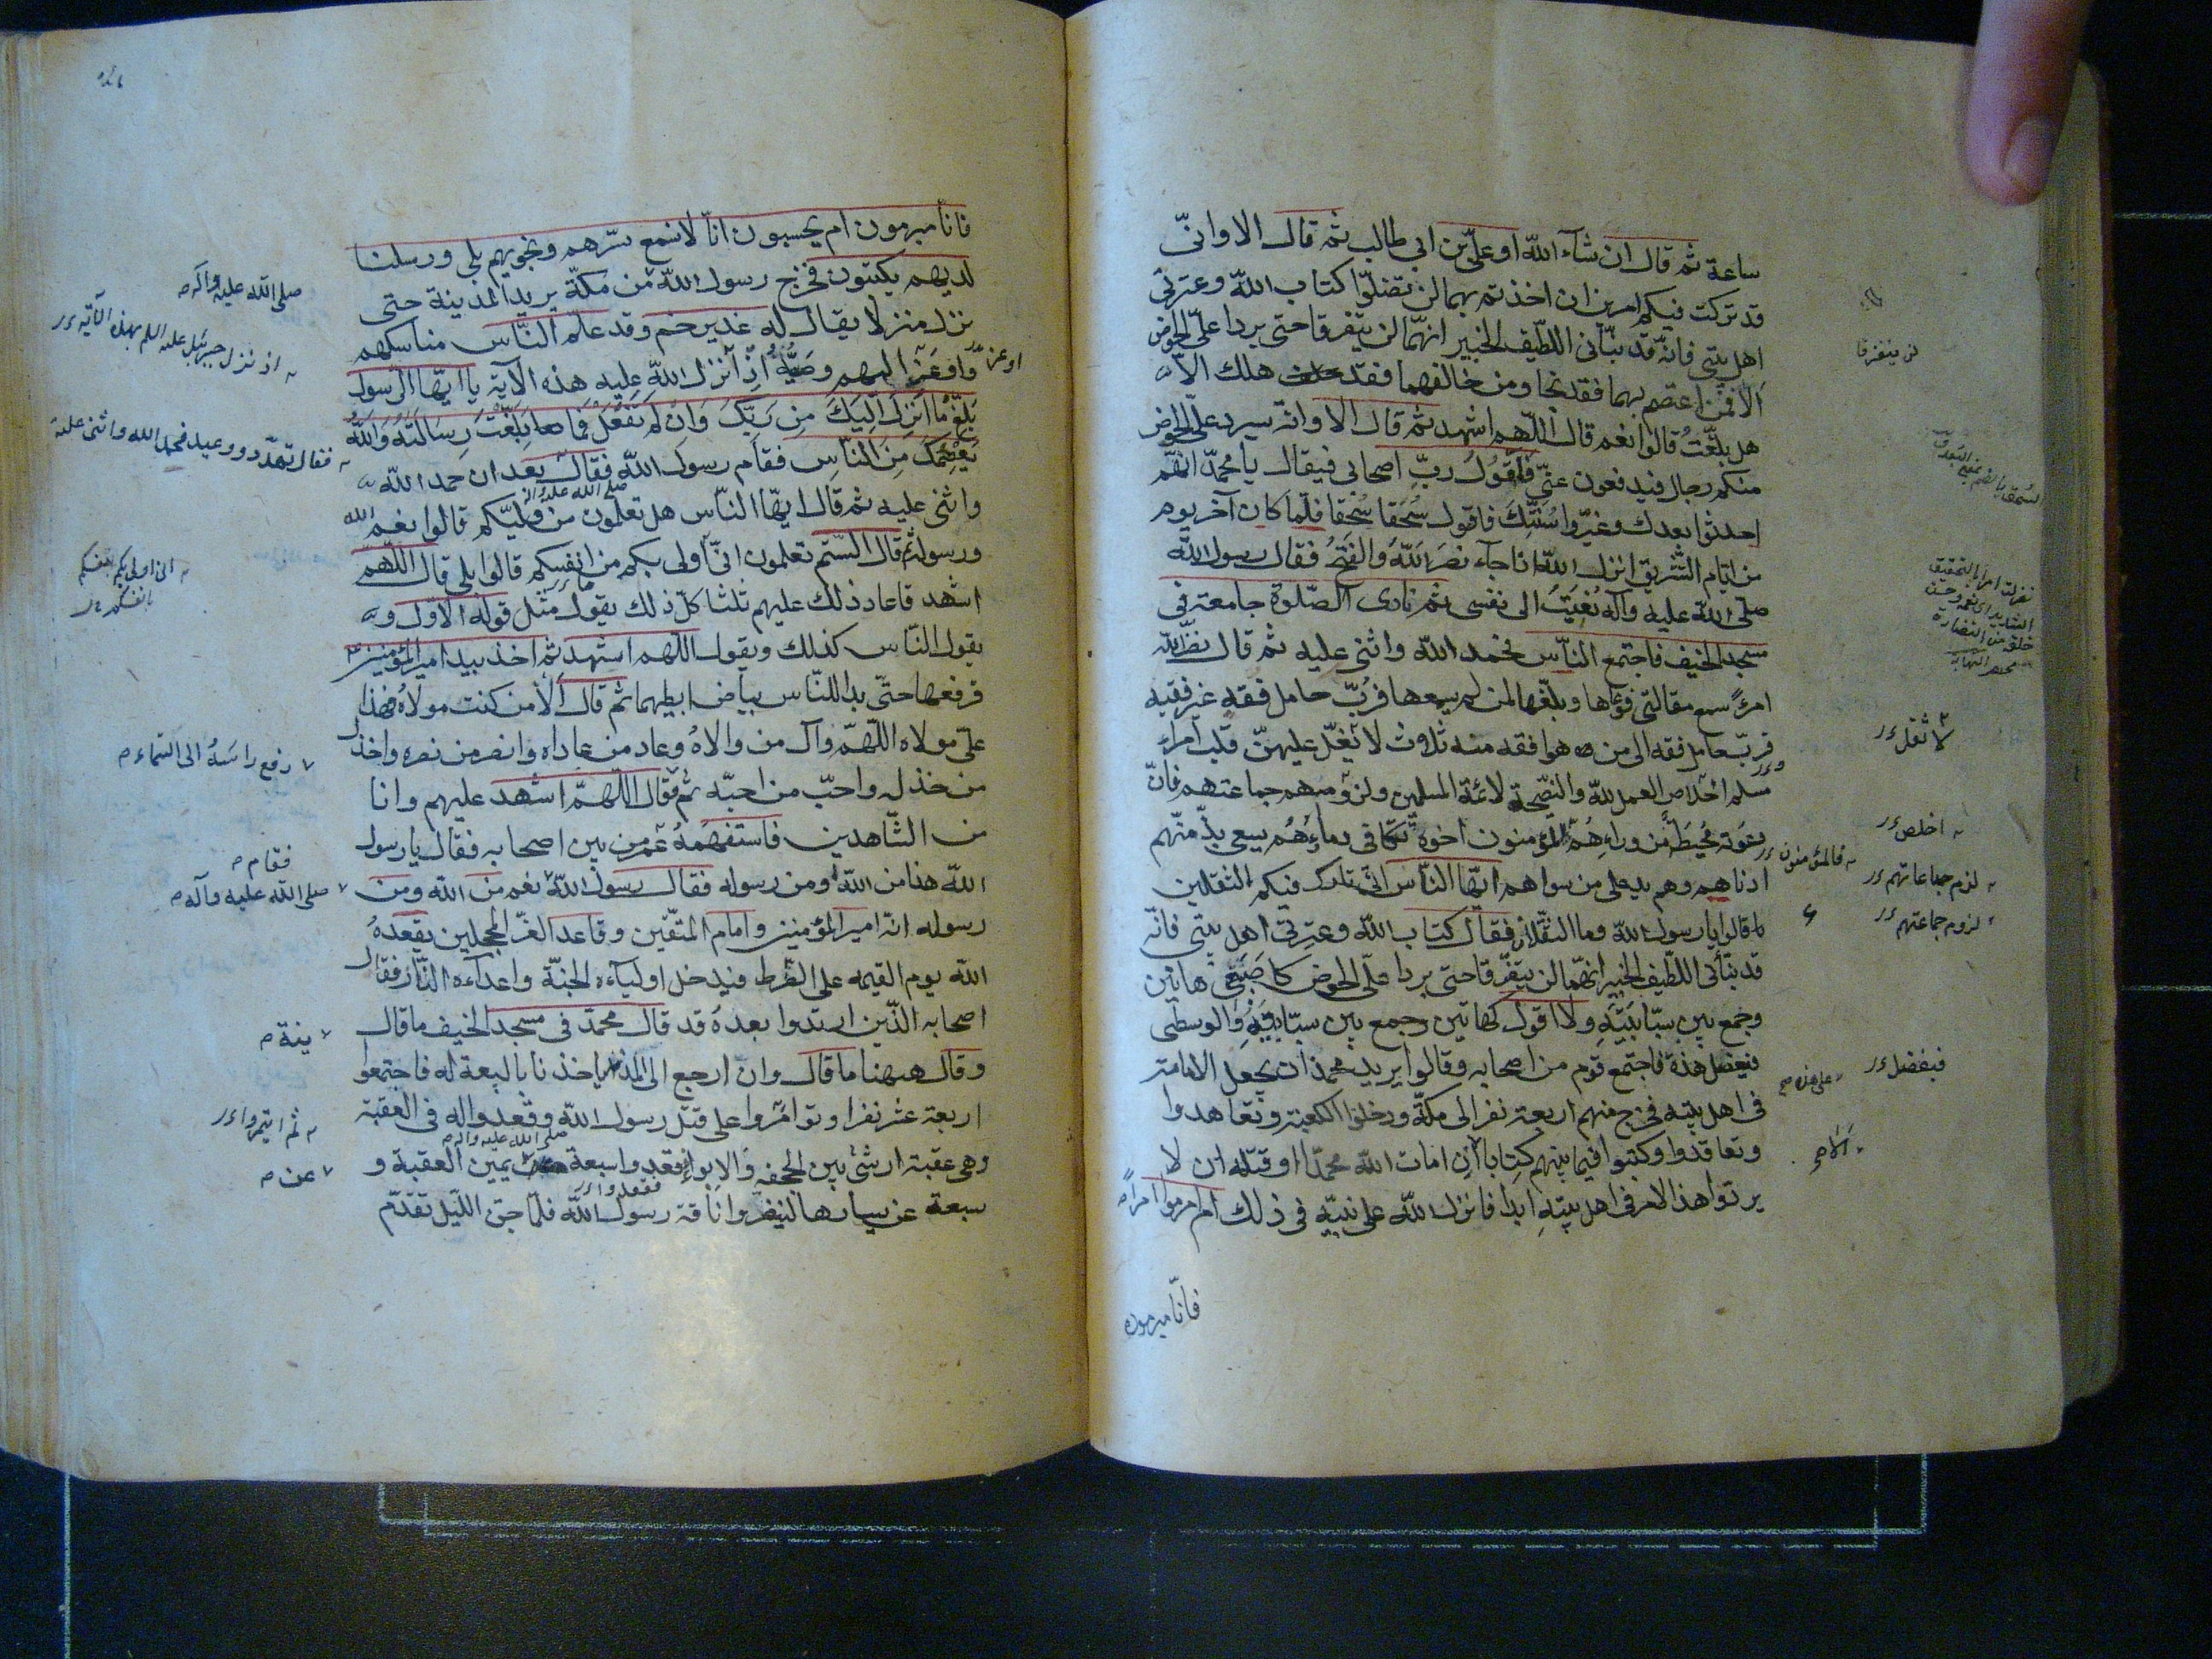 ساعة ثم قال ان شآء الله او علىّ بن ابى طالب ثم قال الا وانّى
قد تركت فيكم امرين ان اخذتم بهما لن تضلّوا كتاب الله وعترتى
اهل بيتى فانّه قد نبّأنى اللّطيف الخبير انّهما لن يتفرقا حتى يردا علىّ الحوض
ألا فمن اعتصم بهما فقد نجا ومن خالفهما فقد هلك الا
هل بلّغتُ قالوا نعم قال اللّهم اشهد ثم قال الا وانّه سيرد علىّ الحوض
منكم رجال فيدفعون عنّى فأقولُ ربِّ اصحابى فيقال يا محمّد انّهم
احدثوا بعدك وغيّروا سُنّتكَ فاقول سُحقا سُحقا فلمّا كان آخر يوم
من ايّام التّشريق انزل الله اذا جآء نصرُ اللهِ والفَتحُ فقال رسول الله
صلّى الله عليه وآله نُعِيَت الى نفسى ثم نادى الصّلوة جامعة فى
مسجد الخيف فاجتمع النّاس فحمد الله واثنى عليه ثم قال نضّر الله
امرءً سمع مقالتى فوعاها وبلّغها لمن لم يسمعها فرُبّ حامل فقه غير فقيه
وربّ حامل فقه الى من هو افقه منه ثلاث لا يُغلّ عليهنّ قلب امرء
مسلم اخلاص العمل لله والنّصيحة لائمّة المسلمين ولزومهم جماعتهم فانّ
دعوته محُيطَةٌ من ورآءِهُم المؤمنون اخوة تتكافى دماءُهُم يسعى بذمّتهم
ادناهم وهم يد على من سواهم ايّها النّاس انّى تارك فيكم الثقلين
قالوا يا رسول الله وما الثقلان فقال كتاب الله وعترتى اهل بيتى فانّه
قد نبّأنى اللّطيف الخبير انّهما لن يتفرّقا حتى يردا علىّ الحوض كاصبَعىّ هاتين
وجمع بين سبّابتَيهِ ولا اقول كهاتين وجمع بين سبّابتِهِ والوسطى
فيفضل هذه فاجتمع قوم من اصحابه وقالوا يريد محمّد ان يجعل الامامة
فى اهل بيته فخرج منهم اربعة نفر الى مكّة ودخلوا الكعبة وتعاهدوا
وتعاقدوا وكتبوا فيما بينهم كِتابا اِن امات الله محمّدا او قتله ان لا
يردّوا هذا الامر فى اهل بيتهِ ابدا فانزل الله على نبيّه فى ذلك ام ابرموا امراً
فانّا مبرمون
لن يفترقا
لا تغلّ
اخلص
فالمؤمنون
لزم جماعاتهم
لزوم جماعتهم
فيفضل
على هذه
فانّا مبرمون ام يحسبون انّا لا نسمع سرّهم ونجويهم بلى ورسلنا
لديهم يكتبون فخرج رسول الله من مكّة يريد المدينة حتى
نزل منزلا يقال له غدير خم وقد علّم النّاس مناسكهم
واوعز اليهم وصيّة اذ انزل الله عليه هذه الآية يا ايّها الرّسول
بَلّغ ما انزلَ اليكَ مِن ربّكَ وان لَم تفعَل فما بلّغتَ رسالته والله
يَعصمك مِن النّاس فقام رسول الله فقال بعد ان حمد الله
واثنى عليه ثم قال ايّها النّاس هل تعلمون من وليّكم قالوا نعم الله
ورسوله ثم قال الستم تعلمون انّى اولى بكم من انفسكم قالوا بلى قال اللّهمّ
اشهد فاعاد ذلك عليهم ثلثا كلّ ذلك يقول مثل قوله الاوّل و
يقول النّاس كذلك ويقول اللّهم اشهد ثم اخذ بيد امير المؤمنين
فرفعها حتّى بدا للنّاس بياض ابطيهما ثم قال ألا من كنت مولاهُ فهذا
علىّ مولاه اللّهمّ وآل من والاهُ وعاد من عاداه وانصر من نصره واخذل
من خذله واحبّ من احبّه ثم قال اللّهمّ اشهد عليهم وانا
من الشّاهدين فاستفهمهُ عمر من بين اصحابه فقال يا رسول
الله هذا من الله ومن رسوله فقال رسول الله نعم من الله ومن
رسوله انّه امير المؤمنين وامام المتّقين وقائد الغرّ المحجّلين يقعدهُ
الله يوم القيمه على الصّرط فيدخل اوليآءه الجنّة واعدآءه النّار فقال
اصحابه الّذين ارتدّوا بعدهُ قد قال محمّد فى مسجد الخيف ما قال
وقال هيهنا ما قال وان رجع الى المدينة ياخذنا بالبيعة له فاجتمعوا
اربعة عشر نفرا وتوامروا على قتل رسول الله وقعدوا له فى العقبة
وهى عقبة ارشى بين الجحفه والابواء فقعدوا سبعة يمين العقبة و
سبعة عن يسارها لينفروا ناقة رسول الله فلمّا جنّ اللّيل تقدّم
صلى الله عليه وآله
اذ نزل جبرئيل عليه السلم بهذه الآية
او عز
فقال تهدّد ووعيد فحمد الله واثنى عليه
صلى الله عليه وآله
انى اولى بكم
بانفسكم
رفع راسَهُ الى السّماء
فقام
صلى الله عليه وآله
ينة
ثم ايتمروا
صلى الله عليه وآله
عن
فقعدوا